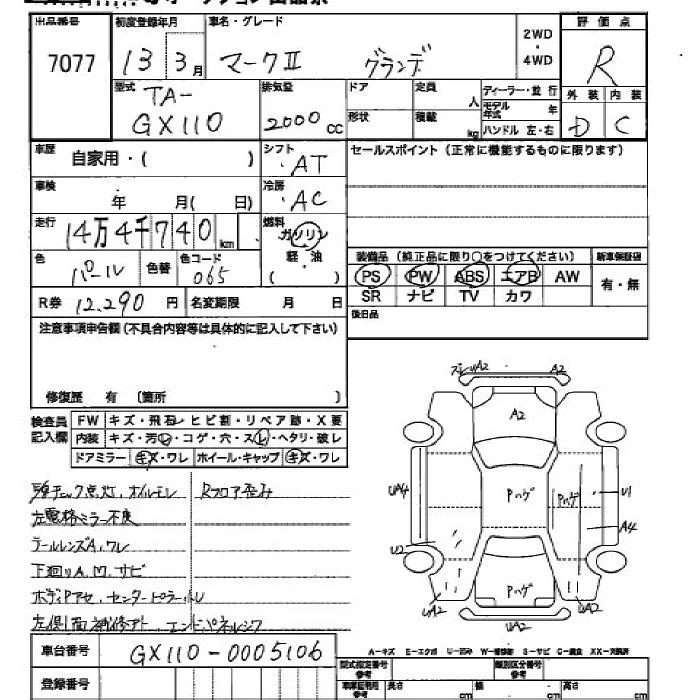 出品番号 初度登録年月 車名・グレード 2WD・4WD 評価点
7077 13 3月 マークⅡ グランデ R
型式 排気量 ドア 定員 人 ディーラー・並行 外装 内装
TA-GX110 2000cc 形状 積載 kg モデル年式 年 ハンドル 左・右 D C
車歴 自家用・( ) シフト AT セールスポイント(正常に機能するものに限ります)
車検 年 月( 日) 冷房 AC
走行 14万4千740km 燃料 ガソリン 軽・油 ( )
色 パール 色替 色コード 065
装備品(純正品に限り○をつけてください) 新車保証書
PS PW ABS エアB AW 有・無
SR ナビ TV カワ
R券 12,290円 名変期限 月 日 後日品
注意事項申告欄(不具合内容等は具体的に記入して下さい)
修復歴 有 〔箇所 〕
検査員記入欄 FW キズ・飛石・ヒビ割・リペア跡・X要
内装 キズ・汚し・コゲ・穴・スレ・ヘタリ・破レ
ドアミラー キズ・ワレ ホイール・キャップ キズ・ワレ
Rフロア歪み
左電格ミラー不良
テールレンズA,ワレ
下廻りA,M,サビ
左側面補修アト エンドパネルシワ
ズレ UA2 A2
A2
UA4 Pハゲ Pハゲ U1
A4
U2
UA2 Pハゲ UA2
UA2
車台番号 GX110-0005106
登録番号
A-キズ E-エクボ U-凹み W-補修跡 S-サビ C-腐食 XX-交換済
型式指定番号 参考 類別区分番号 参考
車庫証明用 参考 長さ cm 幅 cm 高さ cm